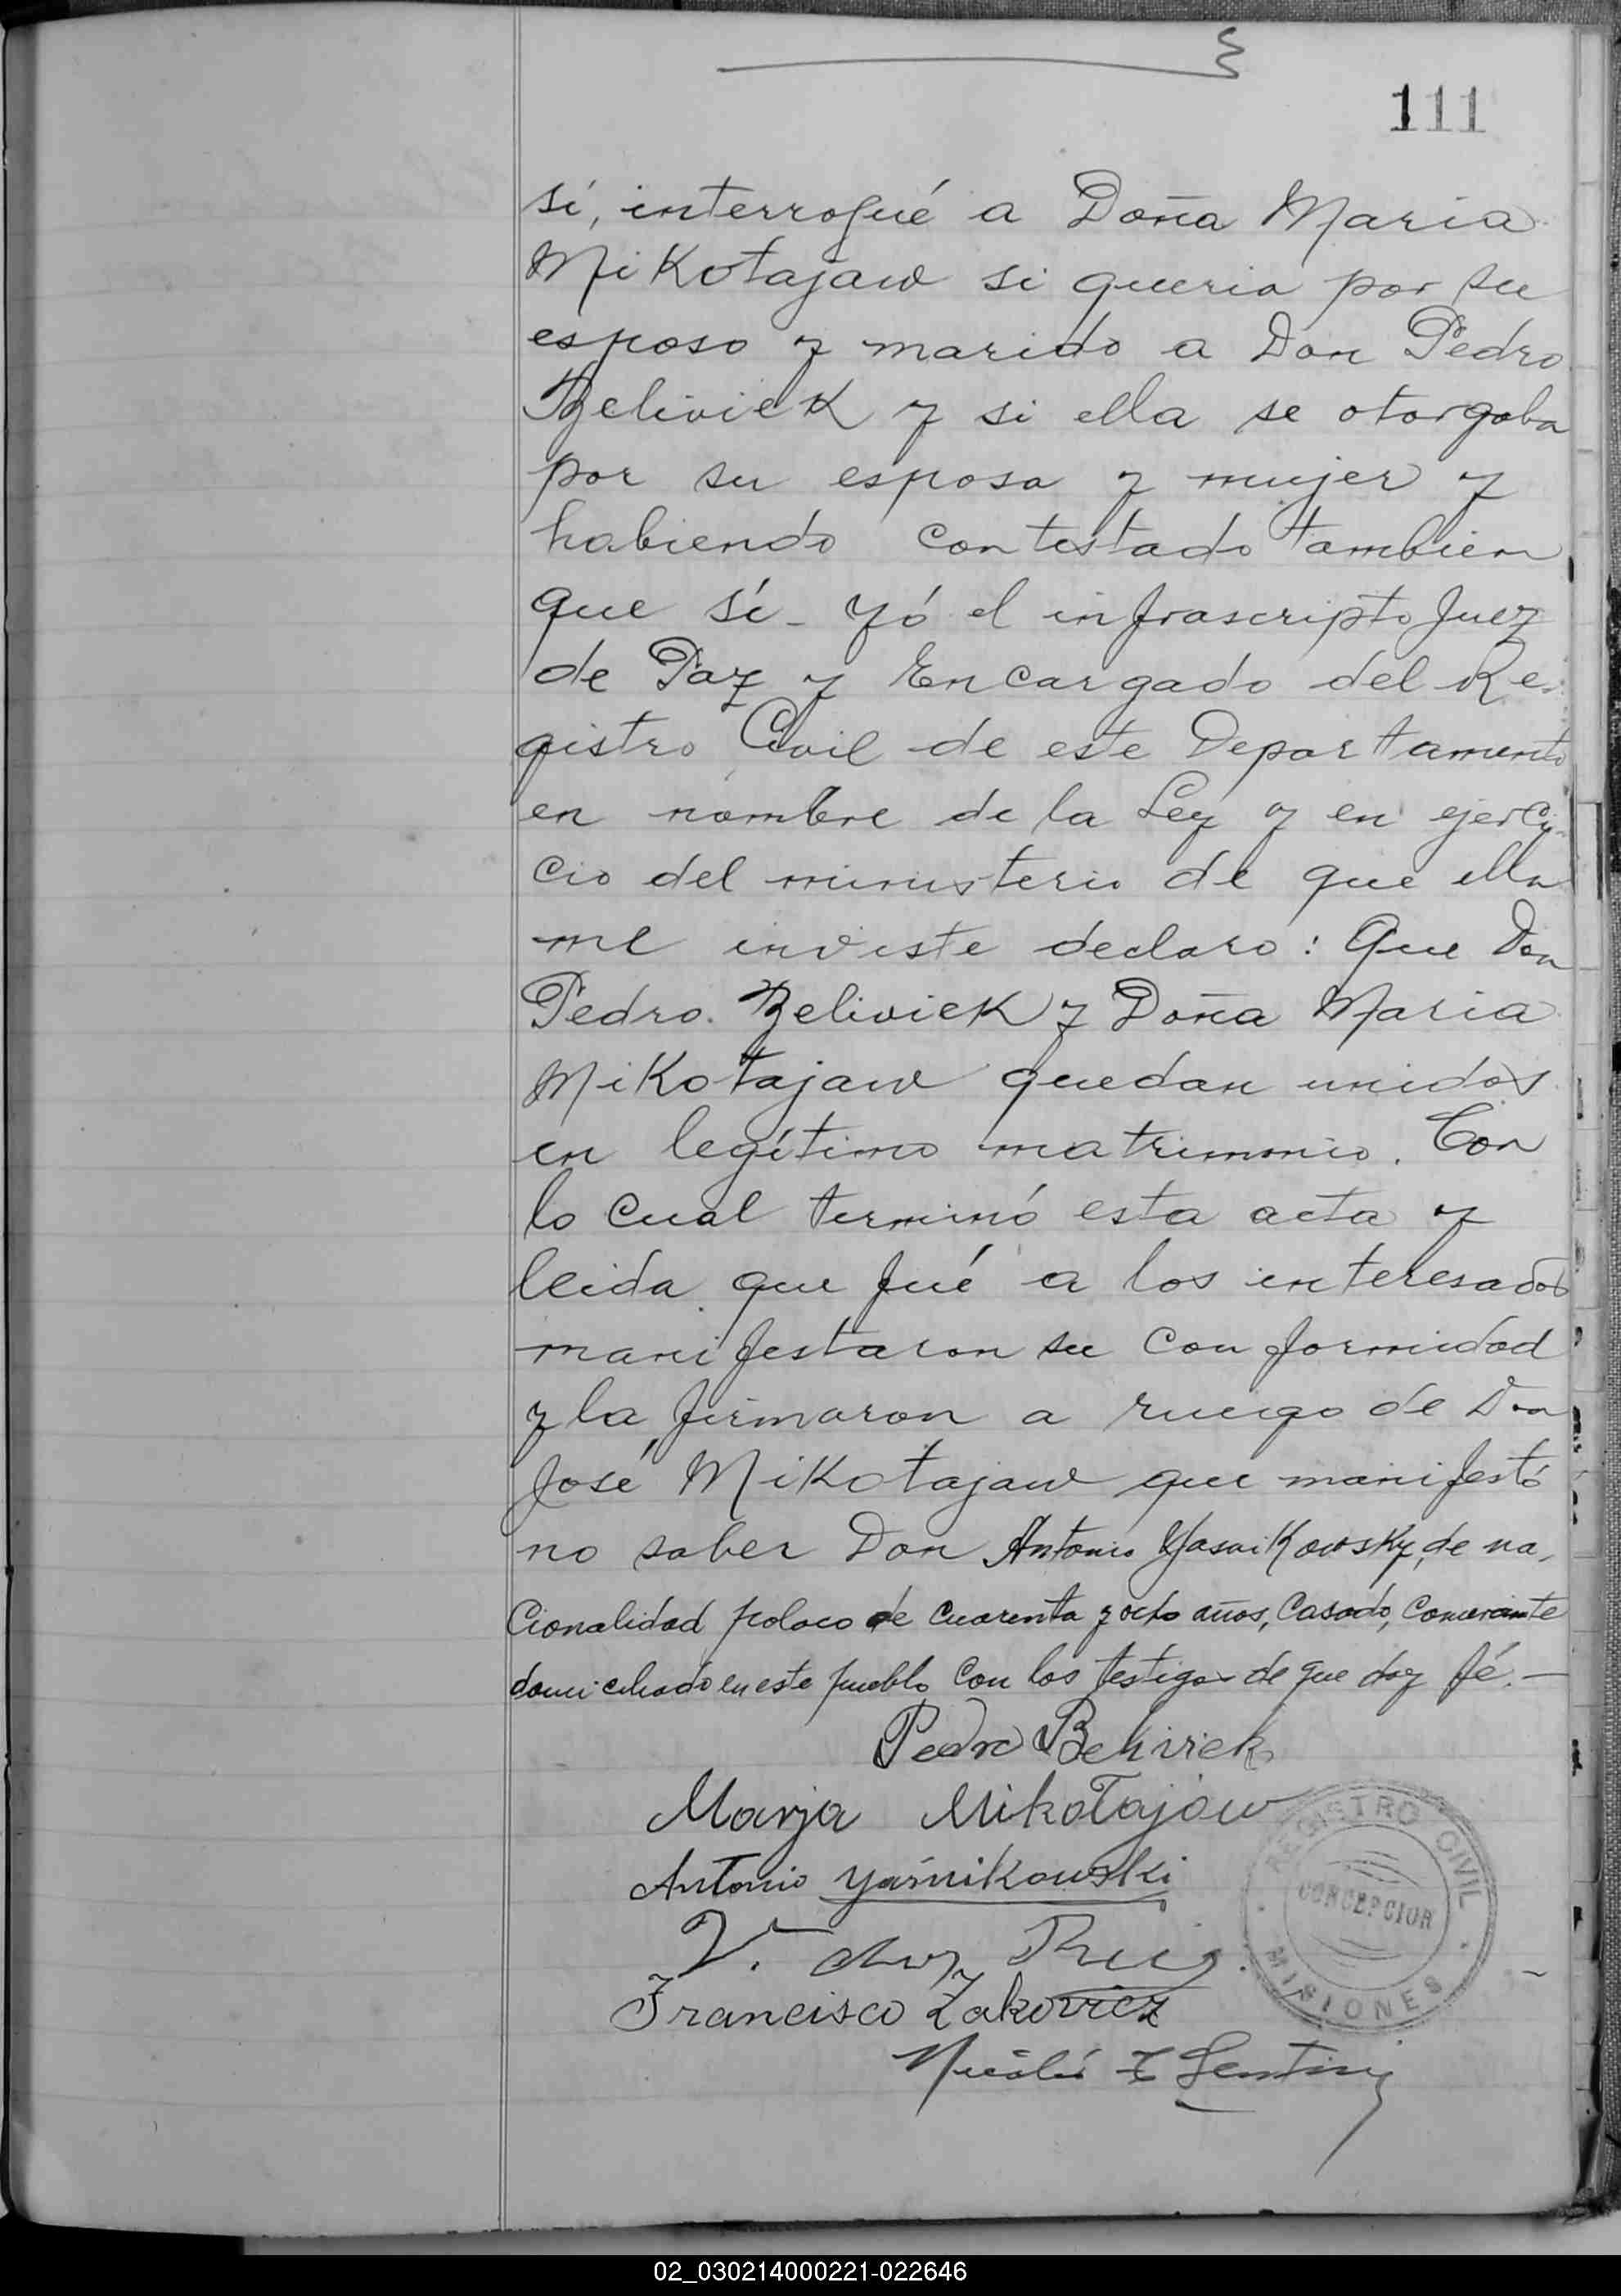 111
sí, interrogué a Doña Maria
Mikotajaw si queria por su
esposo y marido a Don Pedro
Beliviek y si ella se otorgaba
por su esposa y mujer y
habiendo contestado tambien
que sí - Yó el infrascripto Juez
de Paz y Encargado del Re-
gistro Civil de este Departamento
en nombre de la Ley y en ejerci-
cio del ministerio de que ella
me inviste declaro: Que Don
Pedro Beliviek y Doña Maria
Mikotajaw quedan unidos
en legítimo matrimonio. Con
lo cual terminó esta acta y
leida que fué a los interesados
manifestaron su conformidad
y la firmaron a ruego de Don
José Mikotajaw que manifestó
no saber Don Antonio Yasnikowsky, de na-
cionalidad polaco de cuarenta y ocho años, casado, comerciante
domiciliado en este pueblo con los testigos de que doy fé. —
Pedro Beliviek
Marja Mikołajow
Antonio Yaśnikowski
V. Ruiz
Francisco Zakovicz
REGISTRO CIVIL
CONCEPCION
MISIONES
02_030214000221-022646